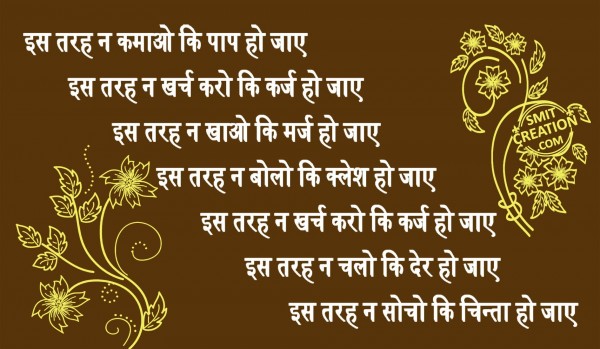 इस तरह न कमाओ कि पाप हो जाए
इस तरह न खर्च करो कि कर्ज हो जाए
इस तरह न खाओ कि मर्ज हो जाए
इस तरह न बोलो कि क्लेश हो जाए
इस तरह न खर्च करो कि कर्ज हो जाए
इस तरह न चलो कि देर हो जाए
इस तरह न सोचो कि चिन्ता हो जाए
SMIT
CREATION
.COM